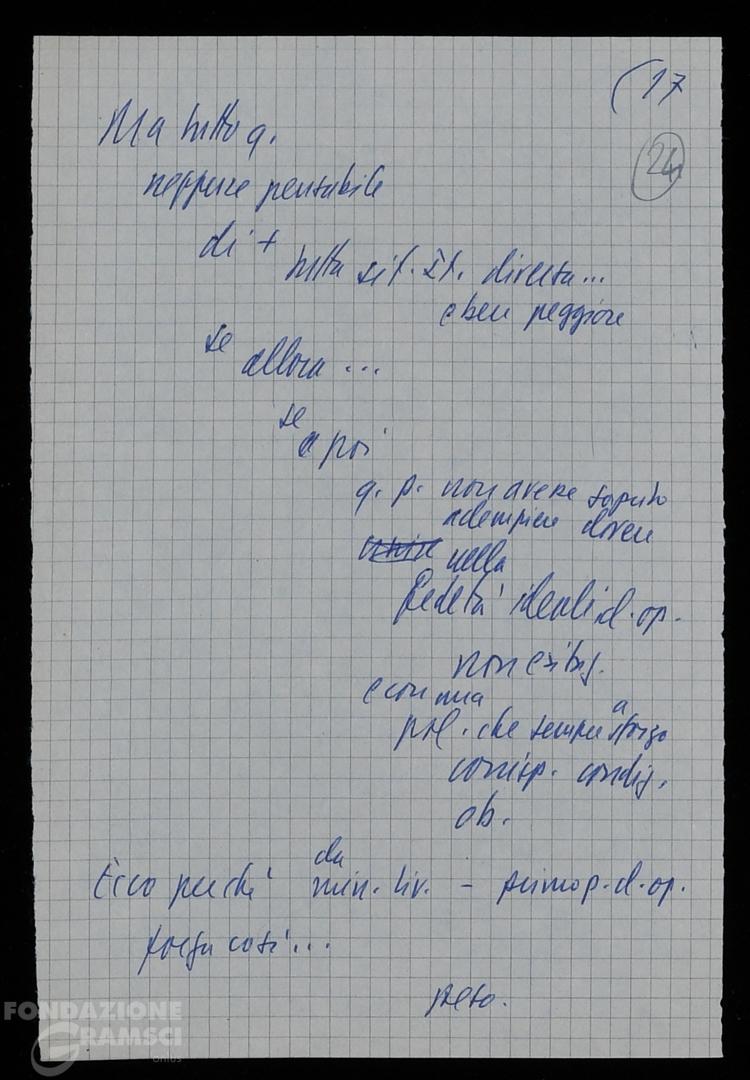 (17
24
Ma tutto q.
neppure pensabile
di +
tutta sit. st. diversa...
e ben peggiore
se
allora ...
se
e poi
q. p. non avesse saputo
adempiere dovere
nella
fedeltà ideali cl. op.
non esibiz.
e con una
pol. che sempre a sforzo
corrisp. condiz.
ob.
Ecco perché da
min. liv. - primo p. cl. op.
forza così ...
peso.
FONDAZIONE
GRAMSCI
onlus